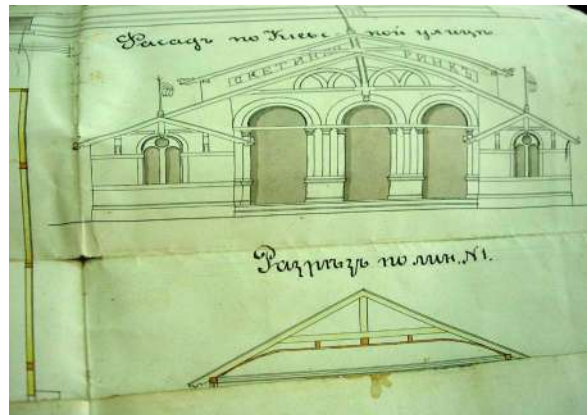 Фасадъ по Кіевс- кой улицѣ
СКЕТИНГЪ РИНКЪ
Разрѣзъ по лин. №1.